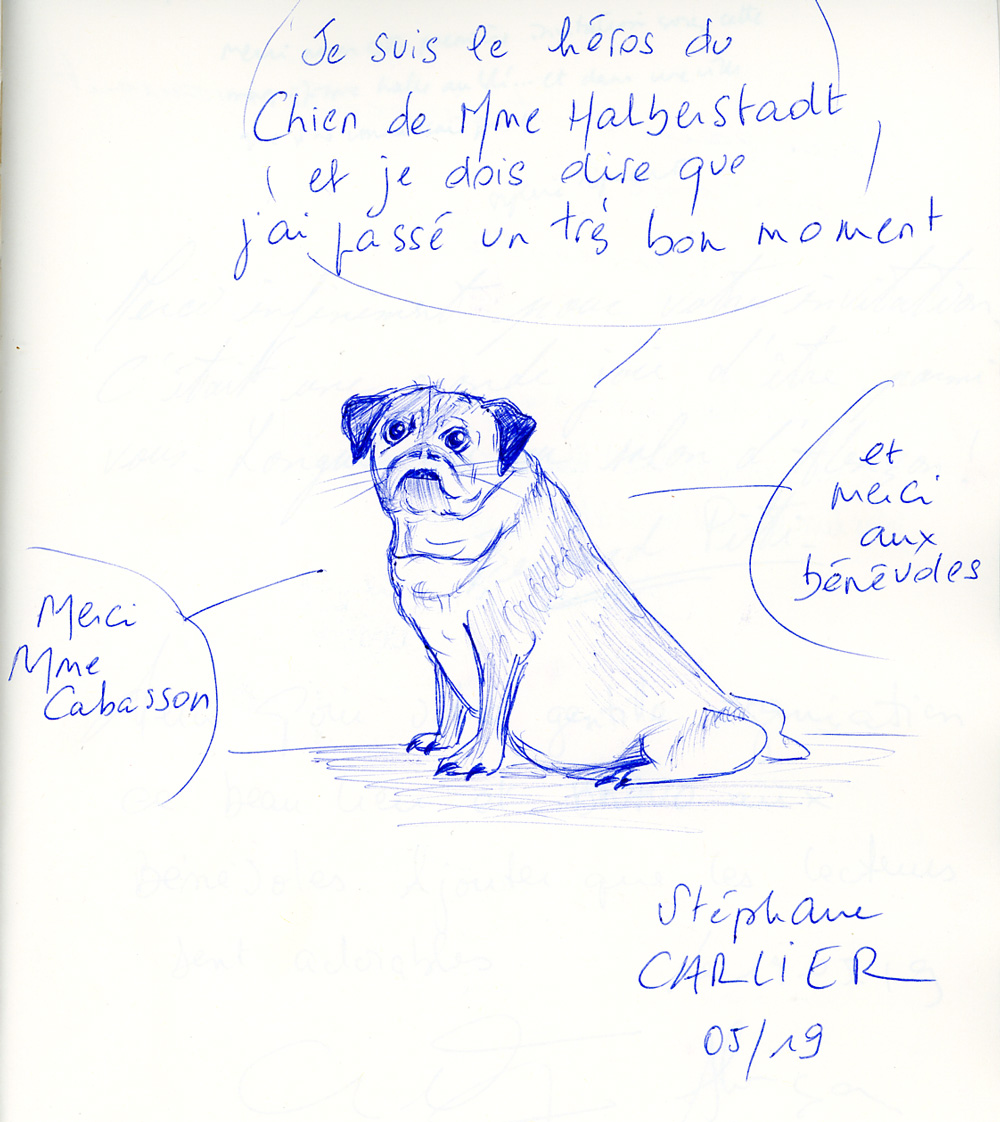 Je suis le héros du
Chien de Mme Halberstadt
et je dois dire que
j'ai passé un très bon moment
et
merci
aux
bénévoles
Merci
Mme
Cabasson
Stéphane
CARLIER
05/19